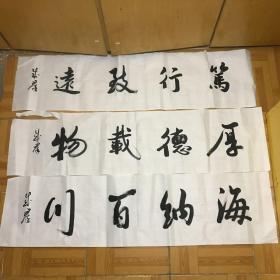 篤行致遠
厚德載物
海納百川